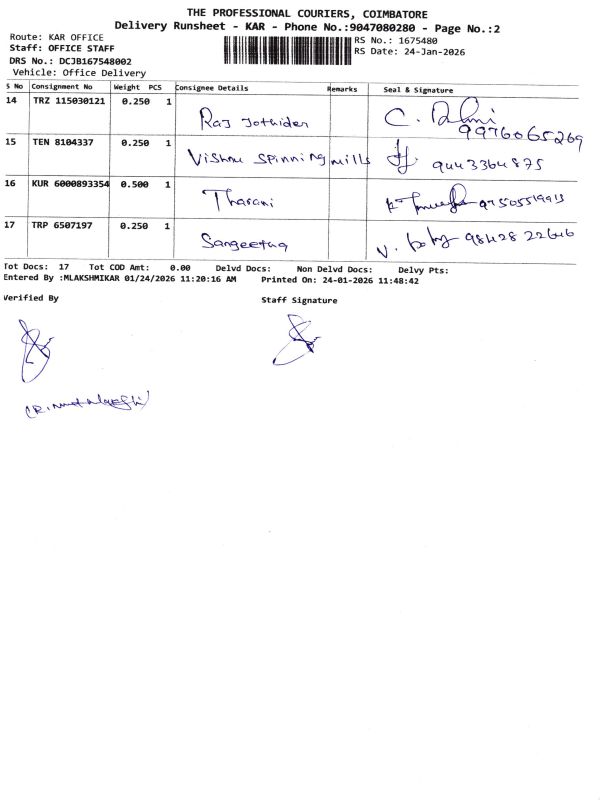 THE PROFESSIONAL COURIERS, COIMBATORE
Delivery Runsheet - KAR - Phone No.:9047080280 - Page No.:2
Route: KAR OFFICE
Staff: OFFICE STAFF
DRS No.: DCJB167548002
Vehicle: Office Delivery
RS No.: 1675480
RS Date: 24-Jan-2026
S No Consignment No Weight PCS Consignee Details Remarks Seal & Signature
14 TRZ 115030121 0.250 1 Raj Jothider C. 9976065269
15 TEN 8104337 0.250 1 Vishnu Spinning mills 9443364875
16 KUR 6000893354 0.500 1 Tharani
17 TRP 6507197 0.250 1 Sangeetha V.
Tot Docs: 17 Tot COD Amt: 0.00 Delvd Docs: Non Delvd Docs: Delvy Pts:
Entered By :MLAKSHMIKAR 01/24/2026 11:20:16 AM Printed On: 24-01-2026 11:48:42
Verified By Staff Signature